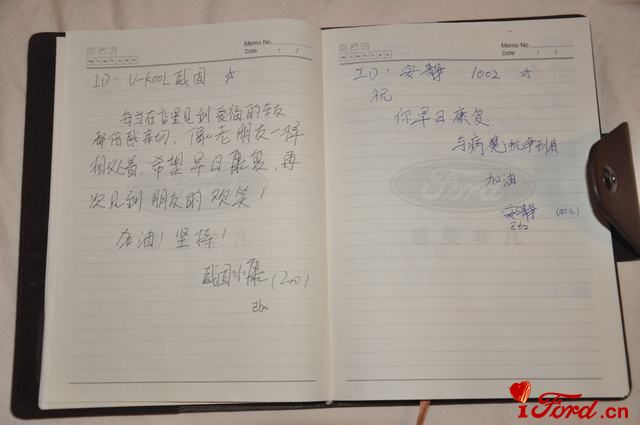 Memo No.
Date / /
ID. U-KOOL威固 ☆
每当在店里见到爱福的车友
都倍感亲切，像老朋友一样
相处着，希望早日康复，再
次见到朋友的欢笑！
加油！坚持！
威固小 (200)
Memo No.
Date / /
ID. 安静 1002 ☆
祝
你早日康复
与病魔抗争到底
加油
安静
Ford
感受非凡
iFord.cn